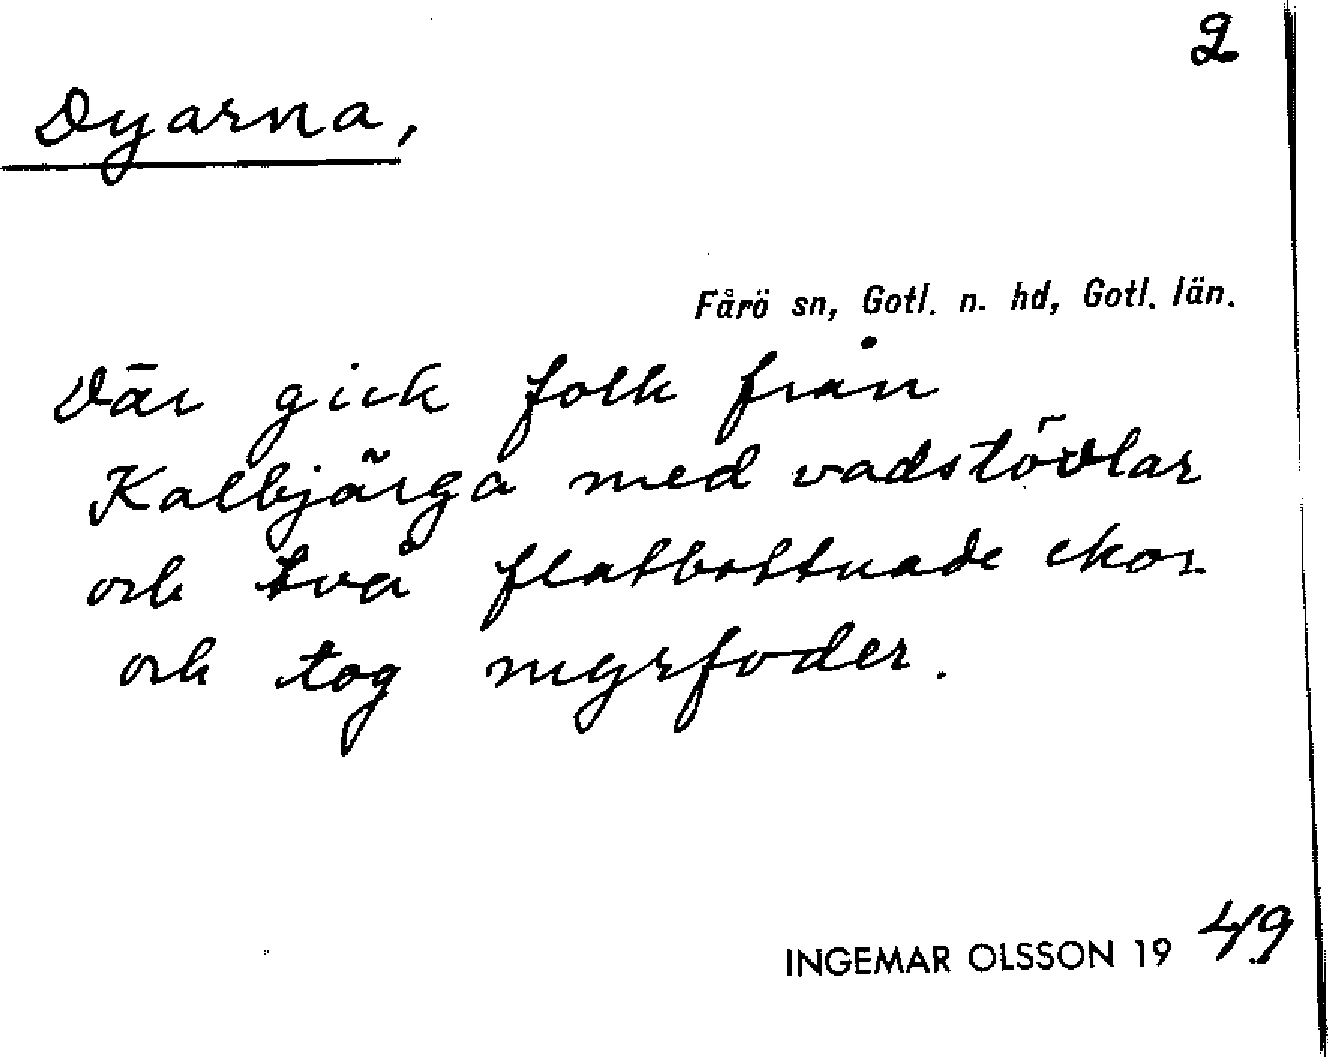 2
Dyarna,
Fårö sn, Gotl. n. hd, Gotl. län.
Där gick folk från
Kalbjärga med vadstövlar
och två flatbottnade ekor
och tog myrfoder.
INGEMAR OLSSON 1949